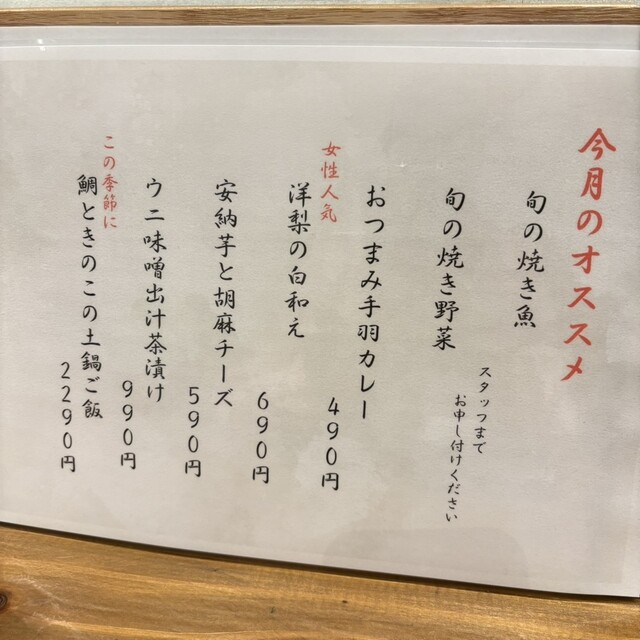 今月のオススメ
旬の焼き魚
旬の焼き野菜
スタッフまで
お申し付けください
おつまみ手羽カレー
490円
女性人気
洋梨の白和え
690円
安納芋と胡麻チーズ
590円
ウニ味噌出汁茶漬け
990円
この季節に
鯛ときのこの土鍋ご飯
2290円